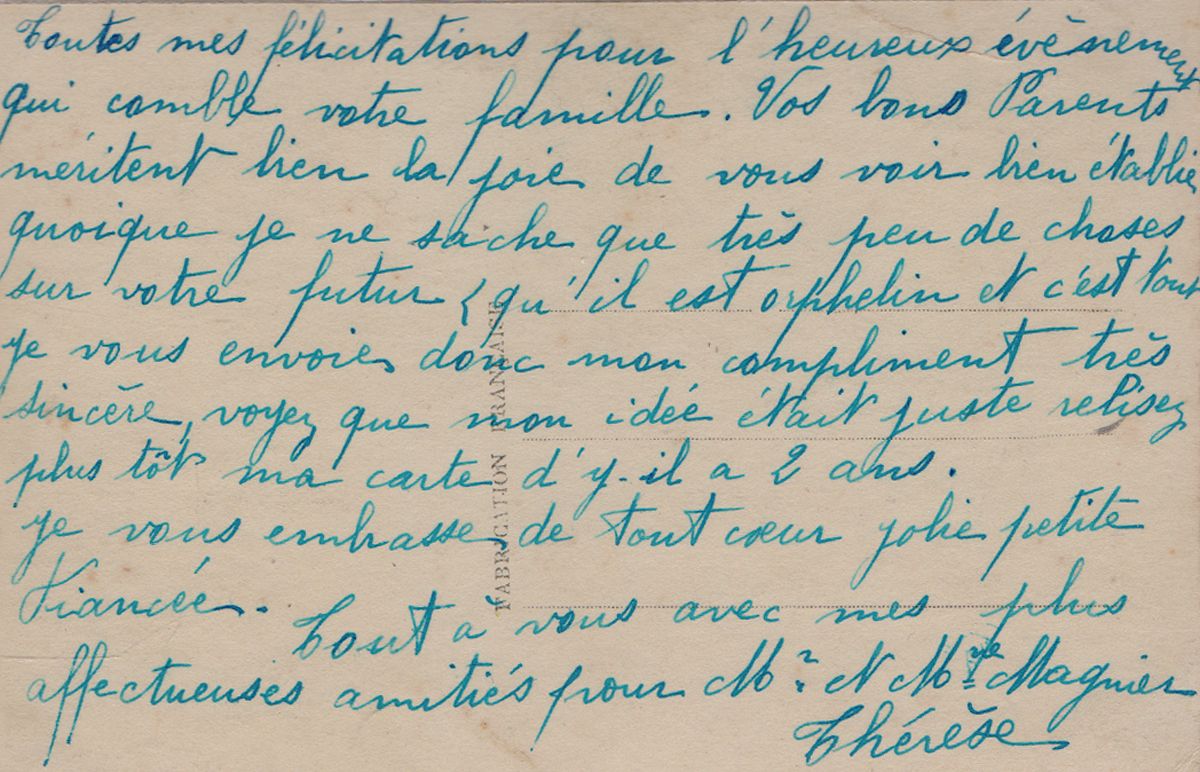 Toutes mes félicitations pour l'heureux évènement
qui comble votre famille. Vos bons Parents
méritent bien la joie de vous voir bien établie
quoique je ne sache que très peu de choses
sur votre futur (qu'il est orphelin et c'est tout
je vous envoie donc mon compliment très
sincère, voyez que mon idée était juste relisez
plus tôt ma carte d'y-il a 2 ans.
je vous embrasse de tout cœur jolie petite
Fiancée. Tout à vous avec mes plus
affectueuses amitiés pour Mr. et Mme Magnier
Thérèse
FABRICATION FRANÇAISE